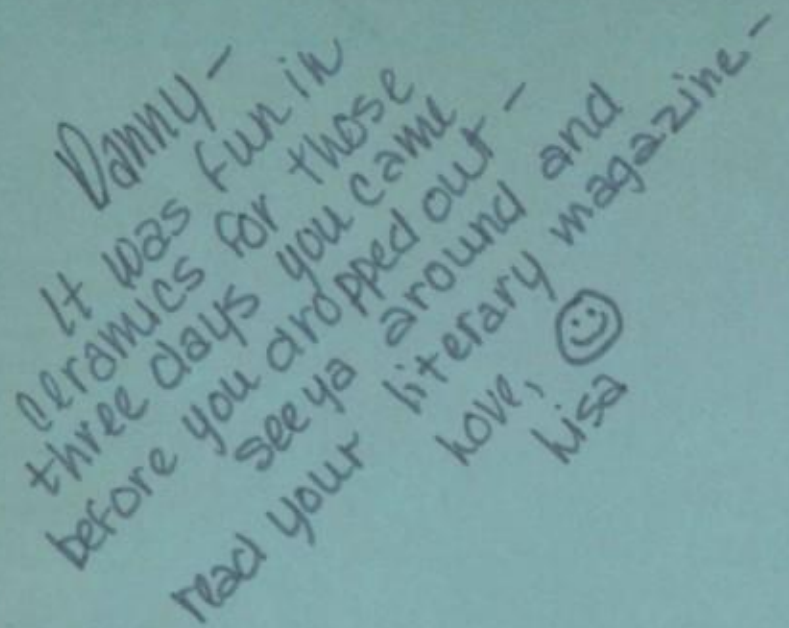 Danny -
It was fun in
ceramics for those
three days you came
before you dropped out -
see ya around and
read your literary magazine -
Love,
Lisa